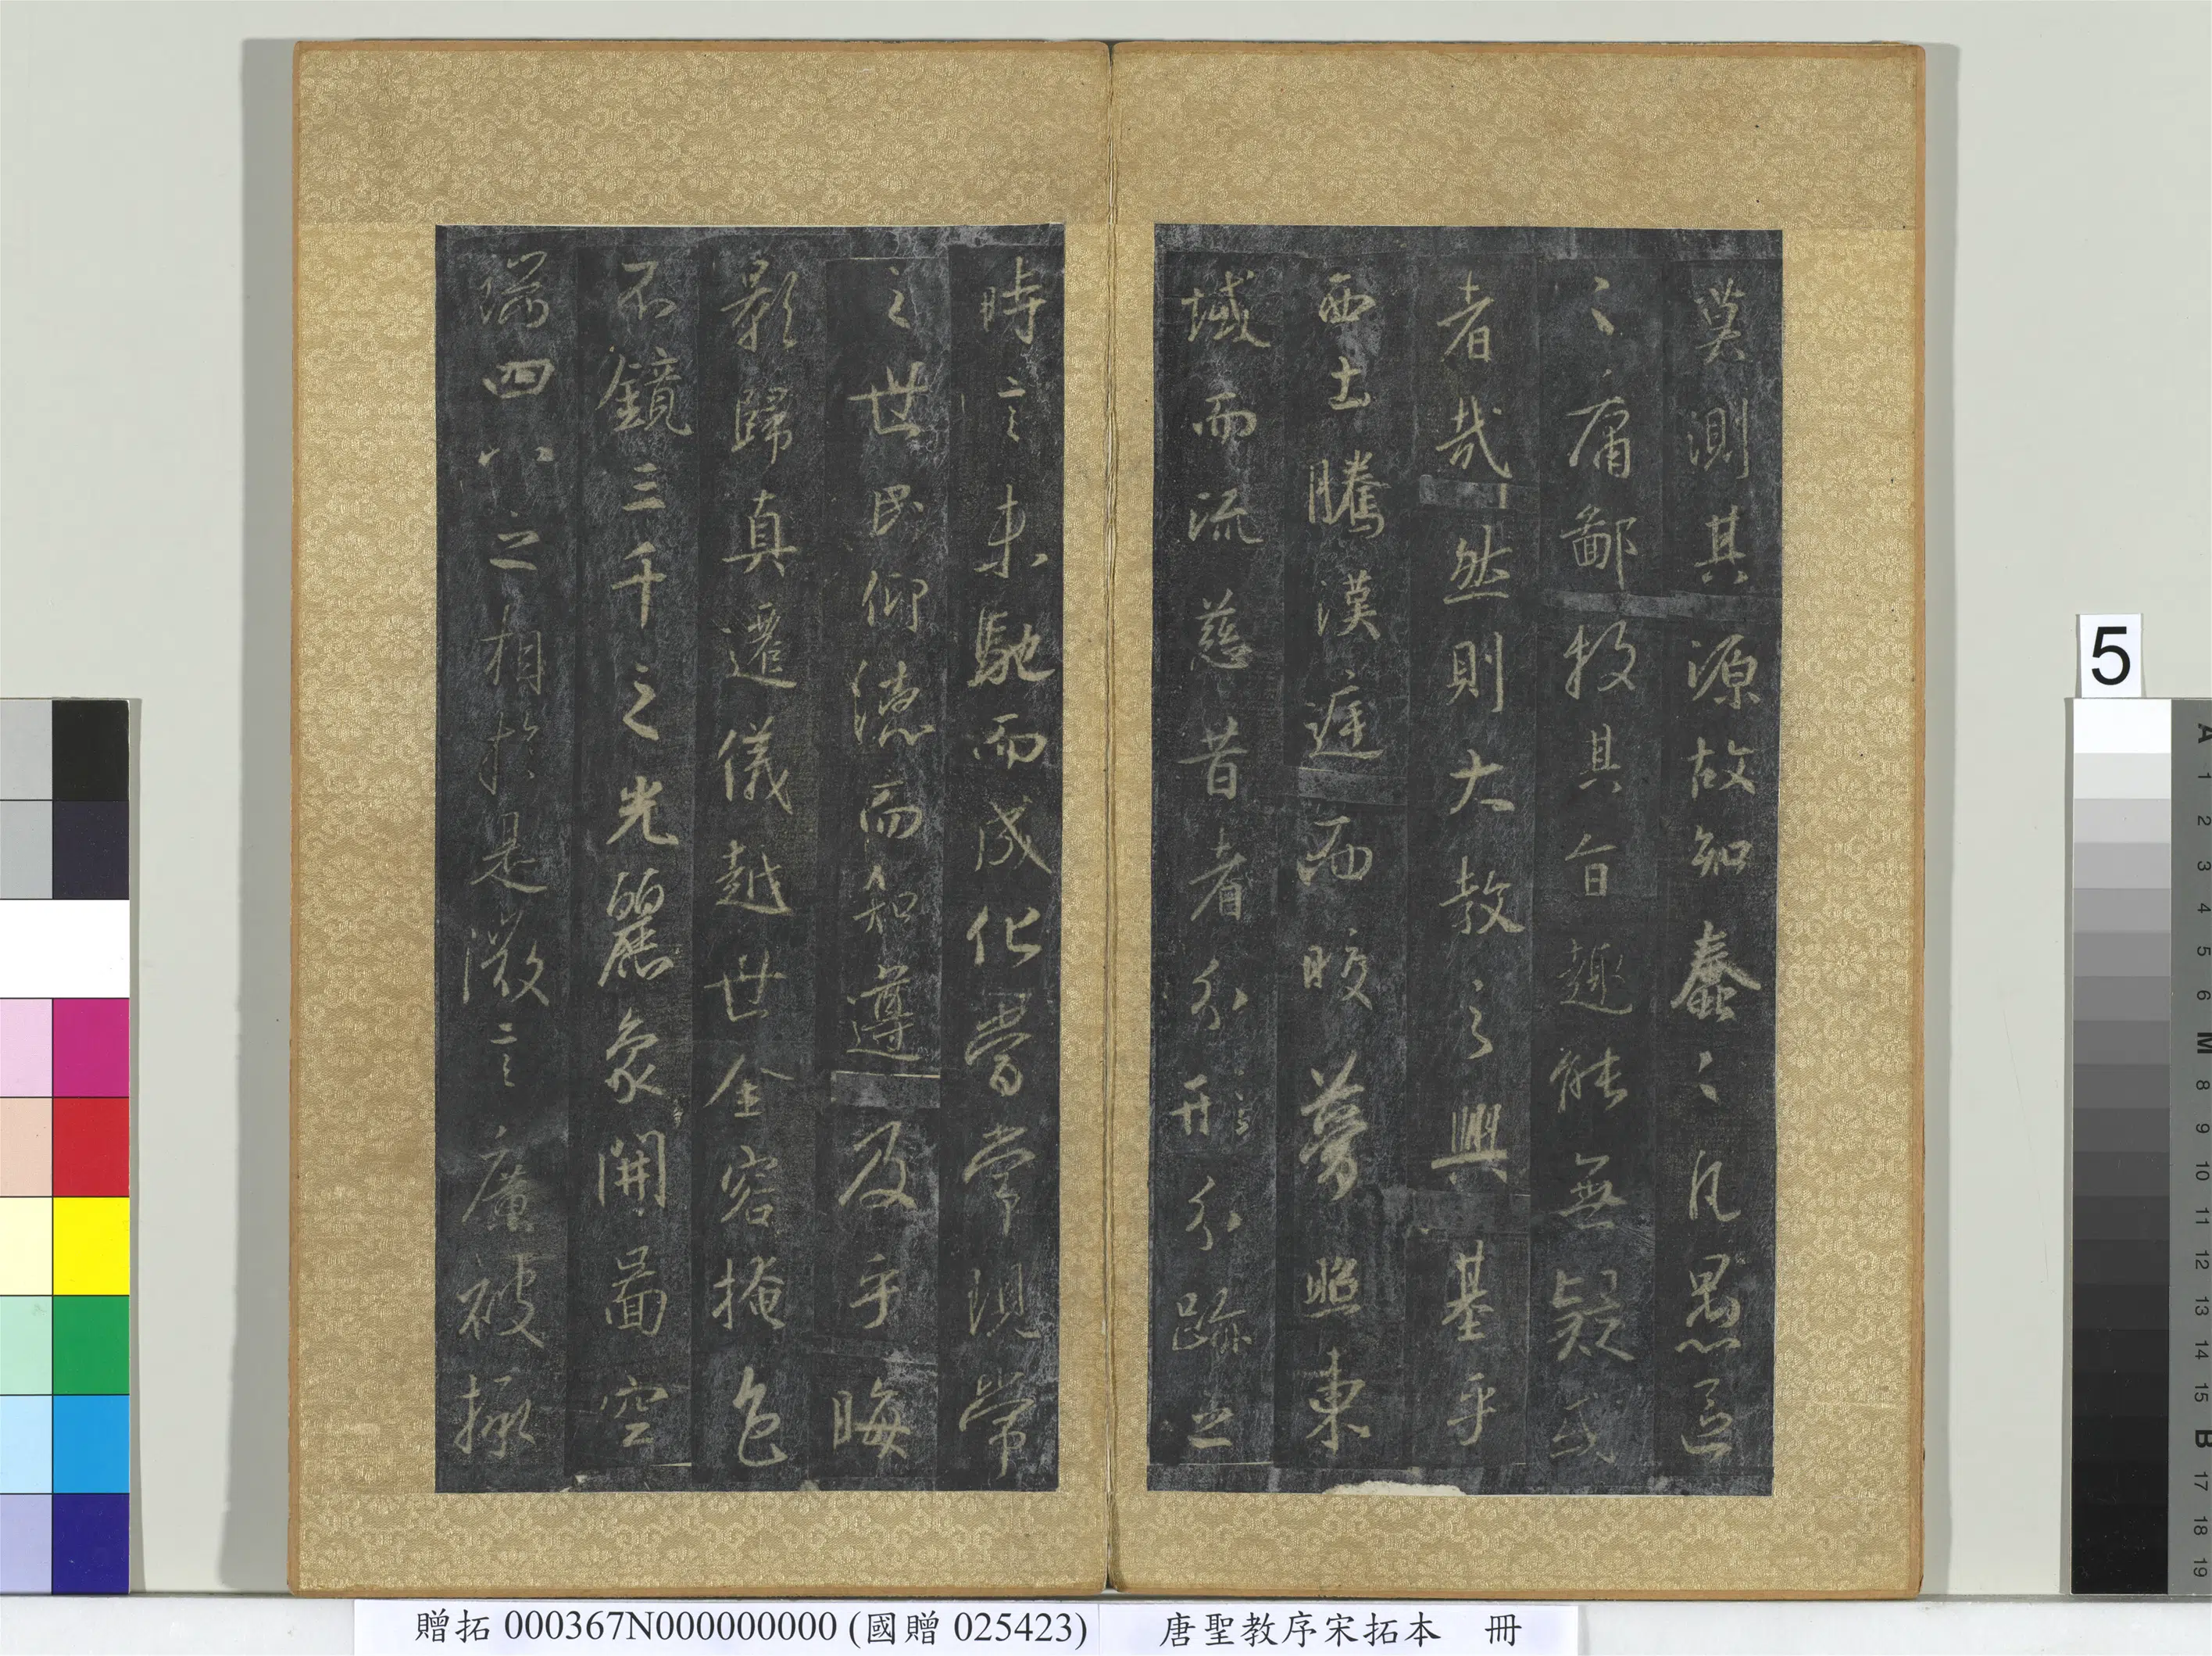 莫測其源故知蠢〻凡愚區
〻庸鄙投其旨趣能無疑或
者哉然則大教之興基乎
西土騰漢庭而皎夢照東
域而流慈昔者分形分跡之
時言未馳而成化當常現常
之世民仰德而知遵及乎晦
影歸真遷儀越世金容掩色
不鏡三千之光麗象開圖空
端四八之相於是微言廣被拯
5
A 1 2 3 4 5 6 M 8 9 10 11 12 13 14 15 B 17 18 19
贈拓 000367N000000000 (國贈 025423) 唐聖教序宋拓本 冊